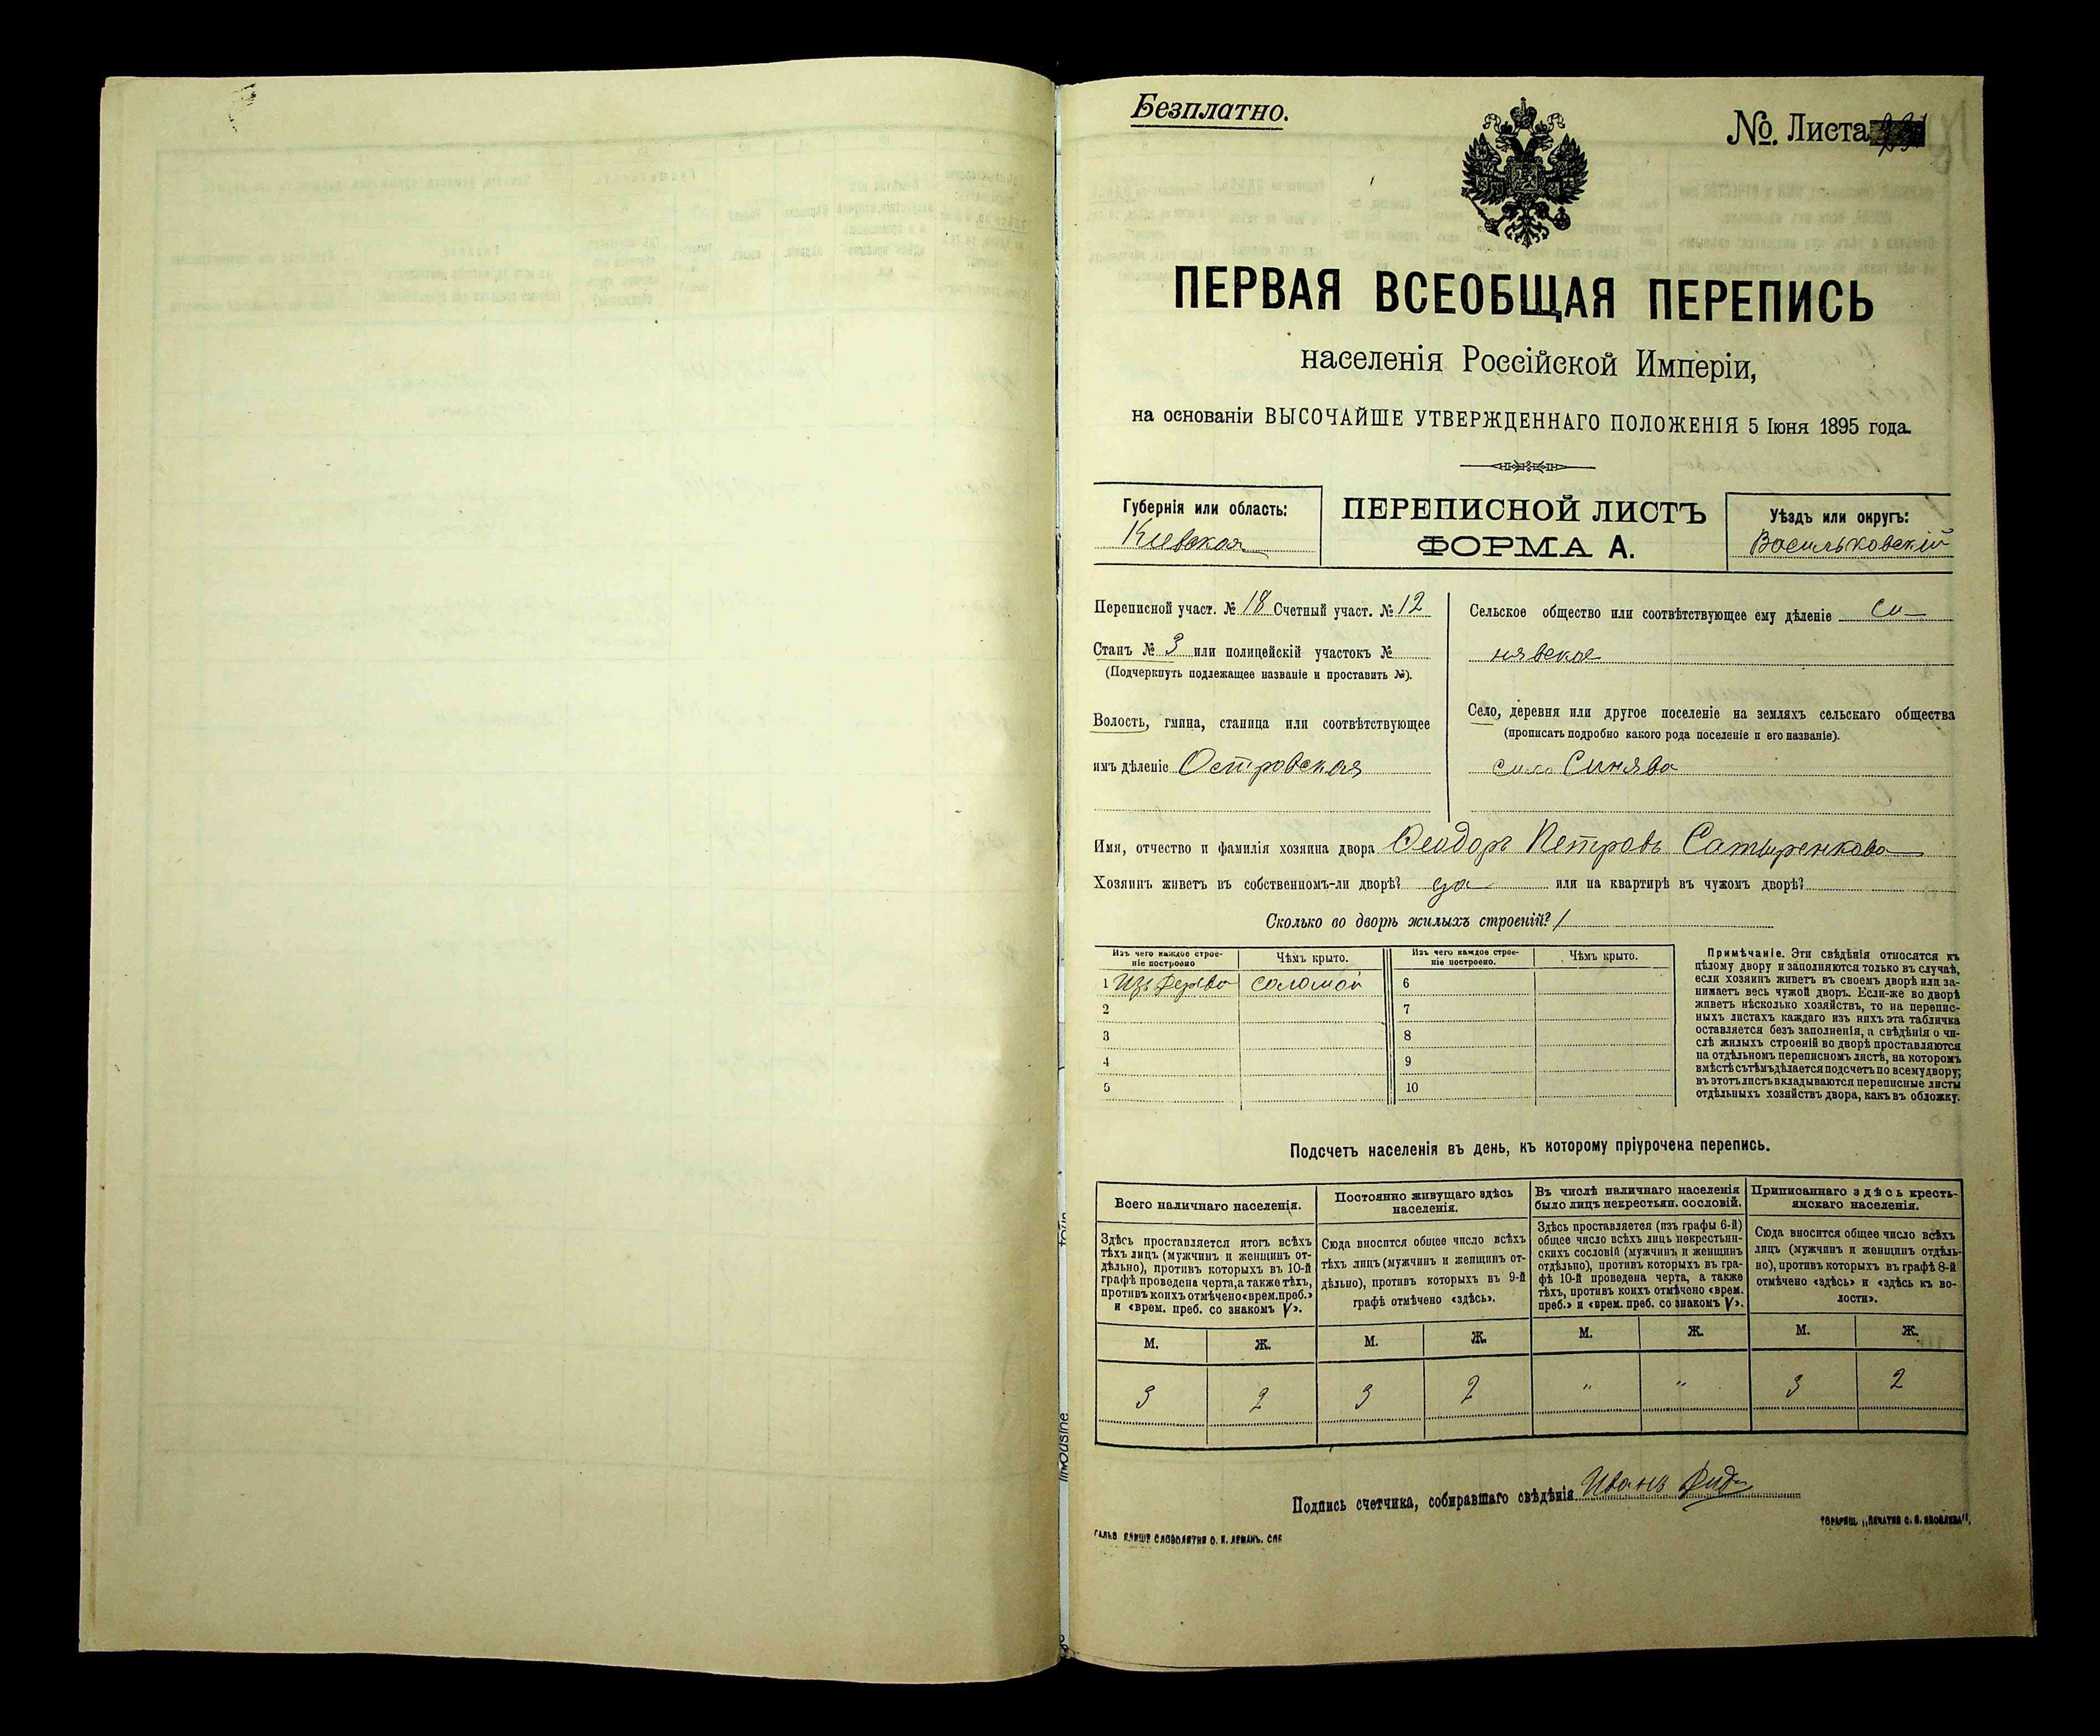 Безплатно.
№ Листа
ПЕРВАЯ ВСЕОБЩАЯ ПЕРЕПИСЬ
населенія Россійской Имперіи,
на основаніи ВЫСОЧАЙШЕ УТВЕРЖДЕННАГО ПОЛОЖЕНІЯ 5 Іюня 1895 года.
Губернія или область:
Кіевская
ПЕРЕПИСНОЙ ЛИСТЪ
ФОРМА А.
Уѣздъ или округъ:
Васильковскій
Переписной участ. № 18 Счетный участ. № 12
Станъ № 3 или полицейскій участокъ №
(Подчеркнуть подлежащее названіе и проставить №).
Волость, гмина, станица или соотвѣтствующее
имъ дѣленіе Островская
Сельское общество или соотвѣтствующее ему дѣленіе Си-
нявское
Село, деревня или другое поселеніе на земляхъ сельскаго общества
(прописать подробно какого рода поселеніе и его названіе).
село Синява
Имя, отчество и фамилія хозяина двора Ѳеодоръ Петровъ Сатыренково
Хозяинъ живетъ въ собственномъ-ли дворѣ? да или на квартирѣ въ чужомъ дворѣ?
Сколько во дворѣ жилыхъ строеній? 1
Изъ чего каждое строе-
ніе построено
Чѣмъ крыто.
Изъ чего каждое строе-
ніе построено.
Чѣмъ крыто.
1 Изъ дерева соломой 6
2 7
3 8
4 9
5 10
Примѣчаніе. Эти свѣдѣнія относятся къ
цѣлому двору и заполняются только въ случаѣ,
если хозяинъ живетъ въ своемъ дворѣ или за-
нимаетъ весь чужой дворъ. Если-же во дворѣ
живетъ нѣсколько хозяйствъ, то на перепис-
ныхъ листахъ каждаго изъ нихъ эта табличка
оставляется безъ заполненія, а свѣдѣнія о чи-
слѣ жилыхъ строеній во дворѣ проставляются
на отдѣльномъ переписномъ листѣ, на которомъ
вмѣстѣ съ тѣмъ дѣлается подсчетъ по всему двору;
въ этотъ листъ вкладываются переписные листы
отдѣльныхъ хозяйствъ двора, какъ въ обложку.
Подсчетъ населенія въ день, къ которому пріурочена перепись.
Всего наличнаго населенія.
Здѣсь проставляется итогъ всѣхъ
тѣхъ лицъ (мужчинъ и женщинъ от-
дѣльно), противъ которыхъ въ 10-й
графѣ проведена черта, а также тѣхъ,
противъ коихъ отмѣчено «врем. преб.»
и «врем. преб. со знакомъ V».
Постоянно живущаго здѣсь
населенія.
Сюда вносится общее число всѣхъ
тѣхъ лицъ (мужчинъ и женщинъ от-
дѣльно), противъ которыхъ въ 9-й
графѣ отмѣчено «здѣсь».
Въ числѣ наличнаго населенія
было лицъ некрестьян. сословій.
Здѣсь проставляется (изъ графы 6-й)
общее число всѣхъ лицъ некрестьян-
скихъ сословій (мужчинъ и женщинъ
отдѣльно), противъ которыхъ въ гра-
фѣ 10-й проведена черта, а также
тѣхъ, противъ коихъ отмѣчено «врем.
преб.» и «врем. преб. со знакомъ V».
Приписаннаго здѣсь кресть-
янскаго населенія.
Сюда вносится общее число всѣхъ
лицъ (мужчинъ и женщинъ отдѣль-
но), противъ которыхъ въ графѣ 8-й
отмѣчено «здѣсь» и «здѣсь къ во-
лости».
М. Ж. М. Ж. М. Ж. М. Ж.
3 2 3 2 " " 3 2
Подпись счетчика, собиравшаго свѣдѣнія Иванъ
ТОВАРИЩ. „ПЕЧАТНЯ С. П. ЯКОВЛЕВА".
limousine